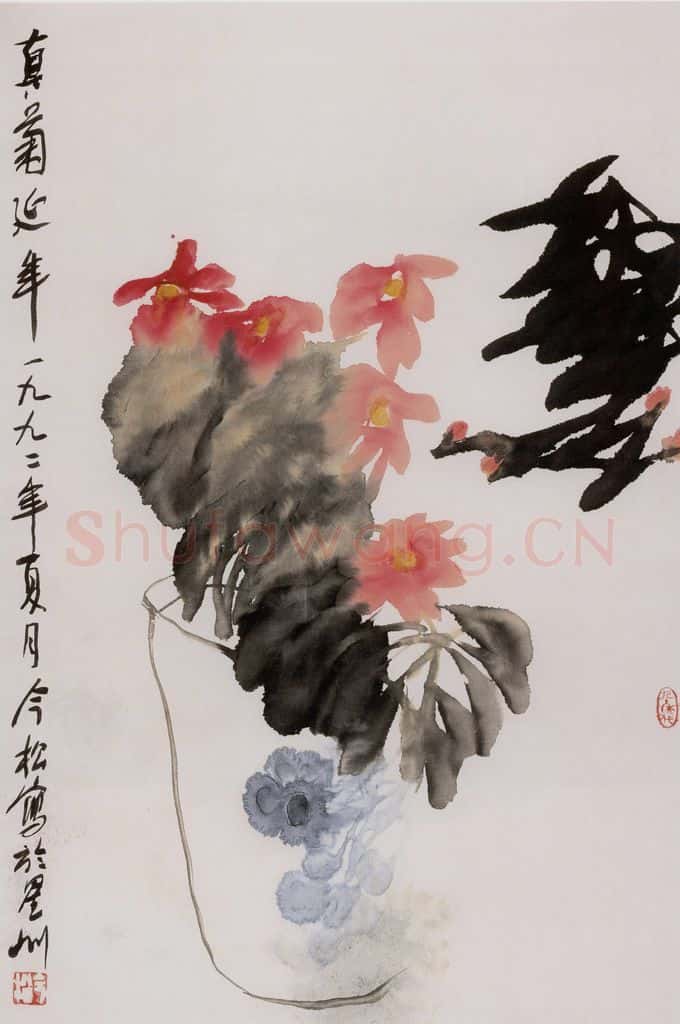 真菊延年 一九九二年夏月今松寫於星州
Shufawang.CN